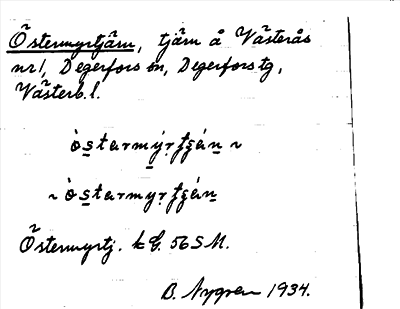 Östermyrtjärn, tjärn å Västerås
nr 1, Degerfors sn, Degerfors tg,
Västerb. l.
òstarmýrʈʂán ~
~ òstarmyrʈʂán
Östermyrtj. k G. 56 S M.
B. Nygren 1934.